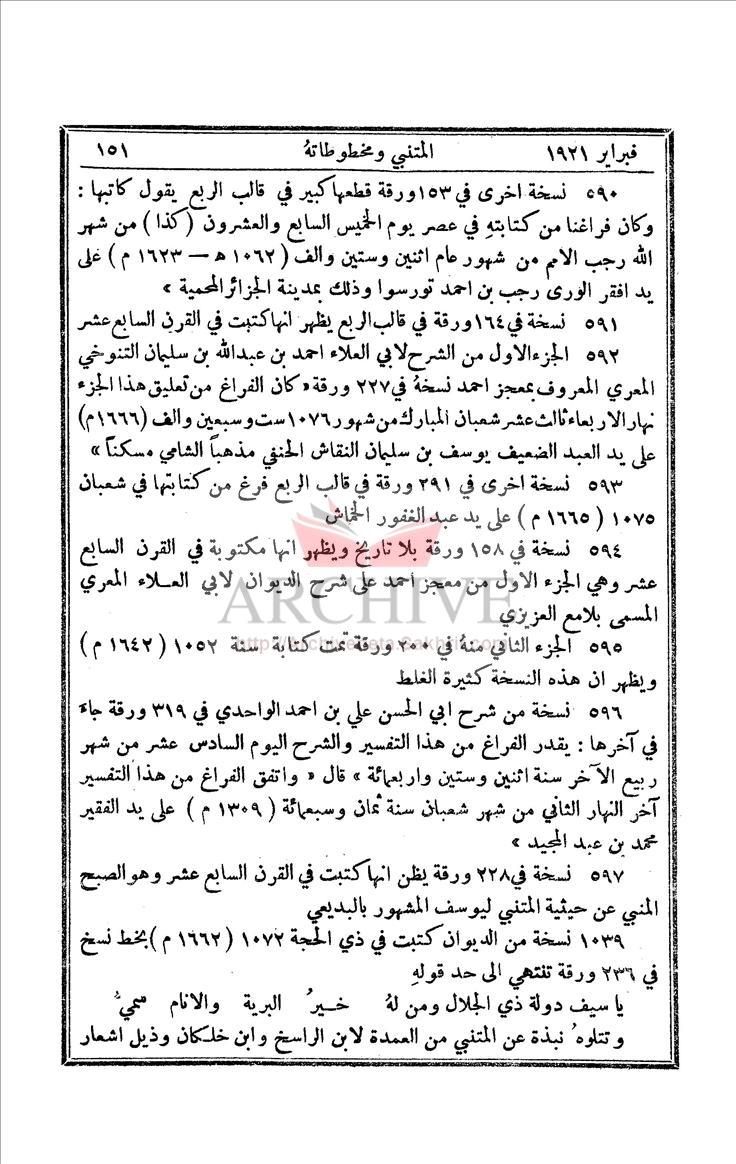 فبراير ١٩٢١ المتنبي ومخطوطاتهُ ١٥١
٥٩٠ نسخة اخرى في ١٥٣ ورقة قطعها كبير في قالب الربع يقول كاتبها :
وكان فراغنا من كتابتهِ في عصر يوم الخميس السابع والعشرون (كذا) من شهر
الله رجب الاصم من شهور عام اثنين وستين والف (١٠٦٢ هـ — ١٦٢٣ م) على
يد افقر الورى رجب بن احمد تورسوا وذلك بمدينة الجزائر المحمية »
٥٩١ نسخة في ١٦٤ ورقة في قالب الربع يظهر انها كتبت في القرن السابع عشر
٥٩٢ الجزء الاول من الشرح لابي العلاء احمد بن عبدالله بن سليمان التنوخي
المعري المعروف بمعجز احمد نسخهُ في ٢٢٧ ورقة « كان الفراغ من تعليق هذا الجزء
نهار الاربعاء ثالث عشر شعبان المبارك من شهور ١٠٧٦ ست وسبعين والف (١٦٦٦م)
على يد العبد الضعيف يوسف بن سليمان النقاش الحنفي مذهباً الشامي مسكناً »
٥٩٣ نسخة اخرى في ٢٩١ ورقة في قالب الربع فرغ من كتابتها في شعبان
١٠٧٥ (١٦٦٥ م) على يد عبد الغفور الخماش
٥٩٤ نسخة في ١٥٨ ورقة بلا تاريخ ويظهر انها مكتوبة في القرن السابع
عشر وهي الجزء الاول من معجز احمد على شرح الديوان لابي العـلاء المعري
ARCHIVE
المسمى بلامع العزيزي
http://Archivebeta.Sakhrit.com
٥٩٥ الجزء الثاني منهُ في ٢٠٠ ورقة تمت كتابة سنة ١٠٥٢ (١٦٤٢ م)
ويظهر ان هذه النسخة كثيرة الغلط
٥٩٦ نسخة من شرح ابي الحسن علي بن احمد الواحدي في ٣١٩ ورقة جاءَ
في آخرها : يقدر الفراغ من هذا التفسير والشرح اليوم السادس عشر من شهر
ربيع الآخر سنة اثنين وستين واربعمائة » قال « واتفق الفراغ من هذا التفسير
آخر النهار الثاني من شهر شعبان سنة ثمان وسبعمائة (١٣٠٩ م) على يد الفقير
محمد بن عبد المجيد »
٥٩٧ نسخة في ٢٢٨ ورقة يظن انها كتبت في القرن السابع عشر وهو الصبح
المنبي عن حيثية المتنبي ليوسف المشهور بالبديعي
١٠٣٩ نسخة من الديوان كتبت في ذي الحجة ١٠٧٢ (١٦٦٢ م) بخط نسخ
في ٢٣٦ ورقة تنتهي الى حد قولهِ
يا سيف دولة ذي الجلال ومن لهُ خــيرُ البرية والانام سميُّ
وتتلوهُ نبذة عن المتنبي من العمدة لابن الراسخ وابن خلكان وذيل اشعار